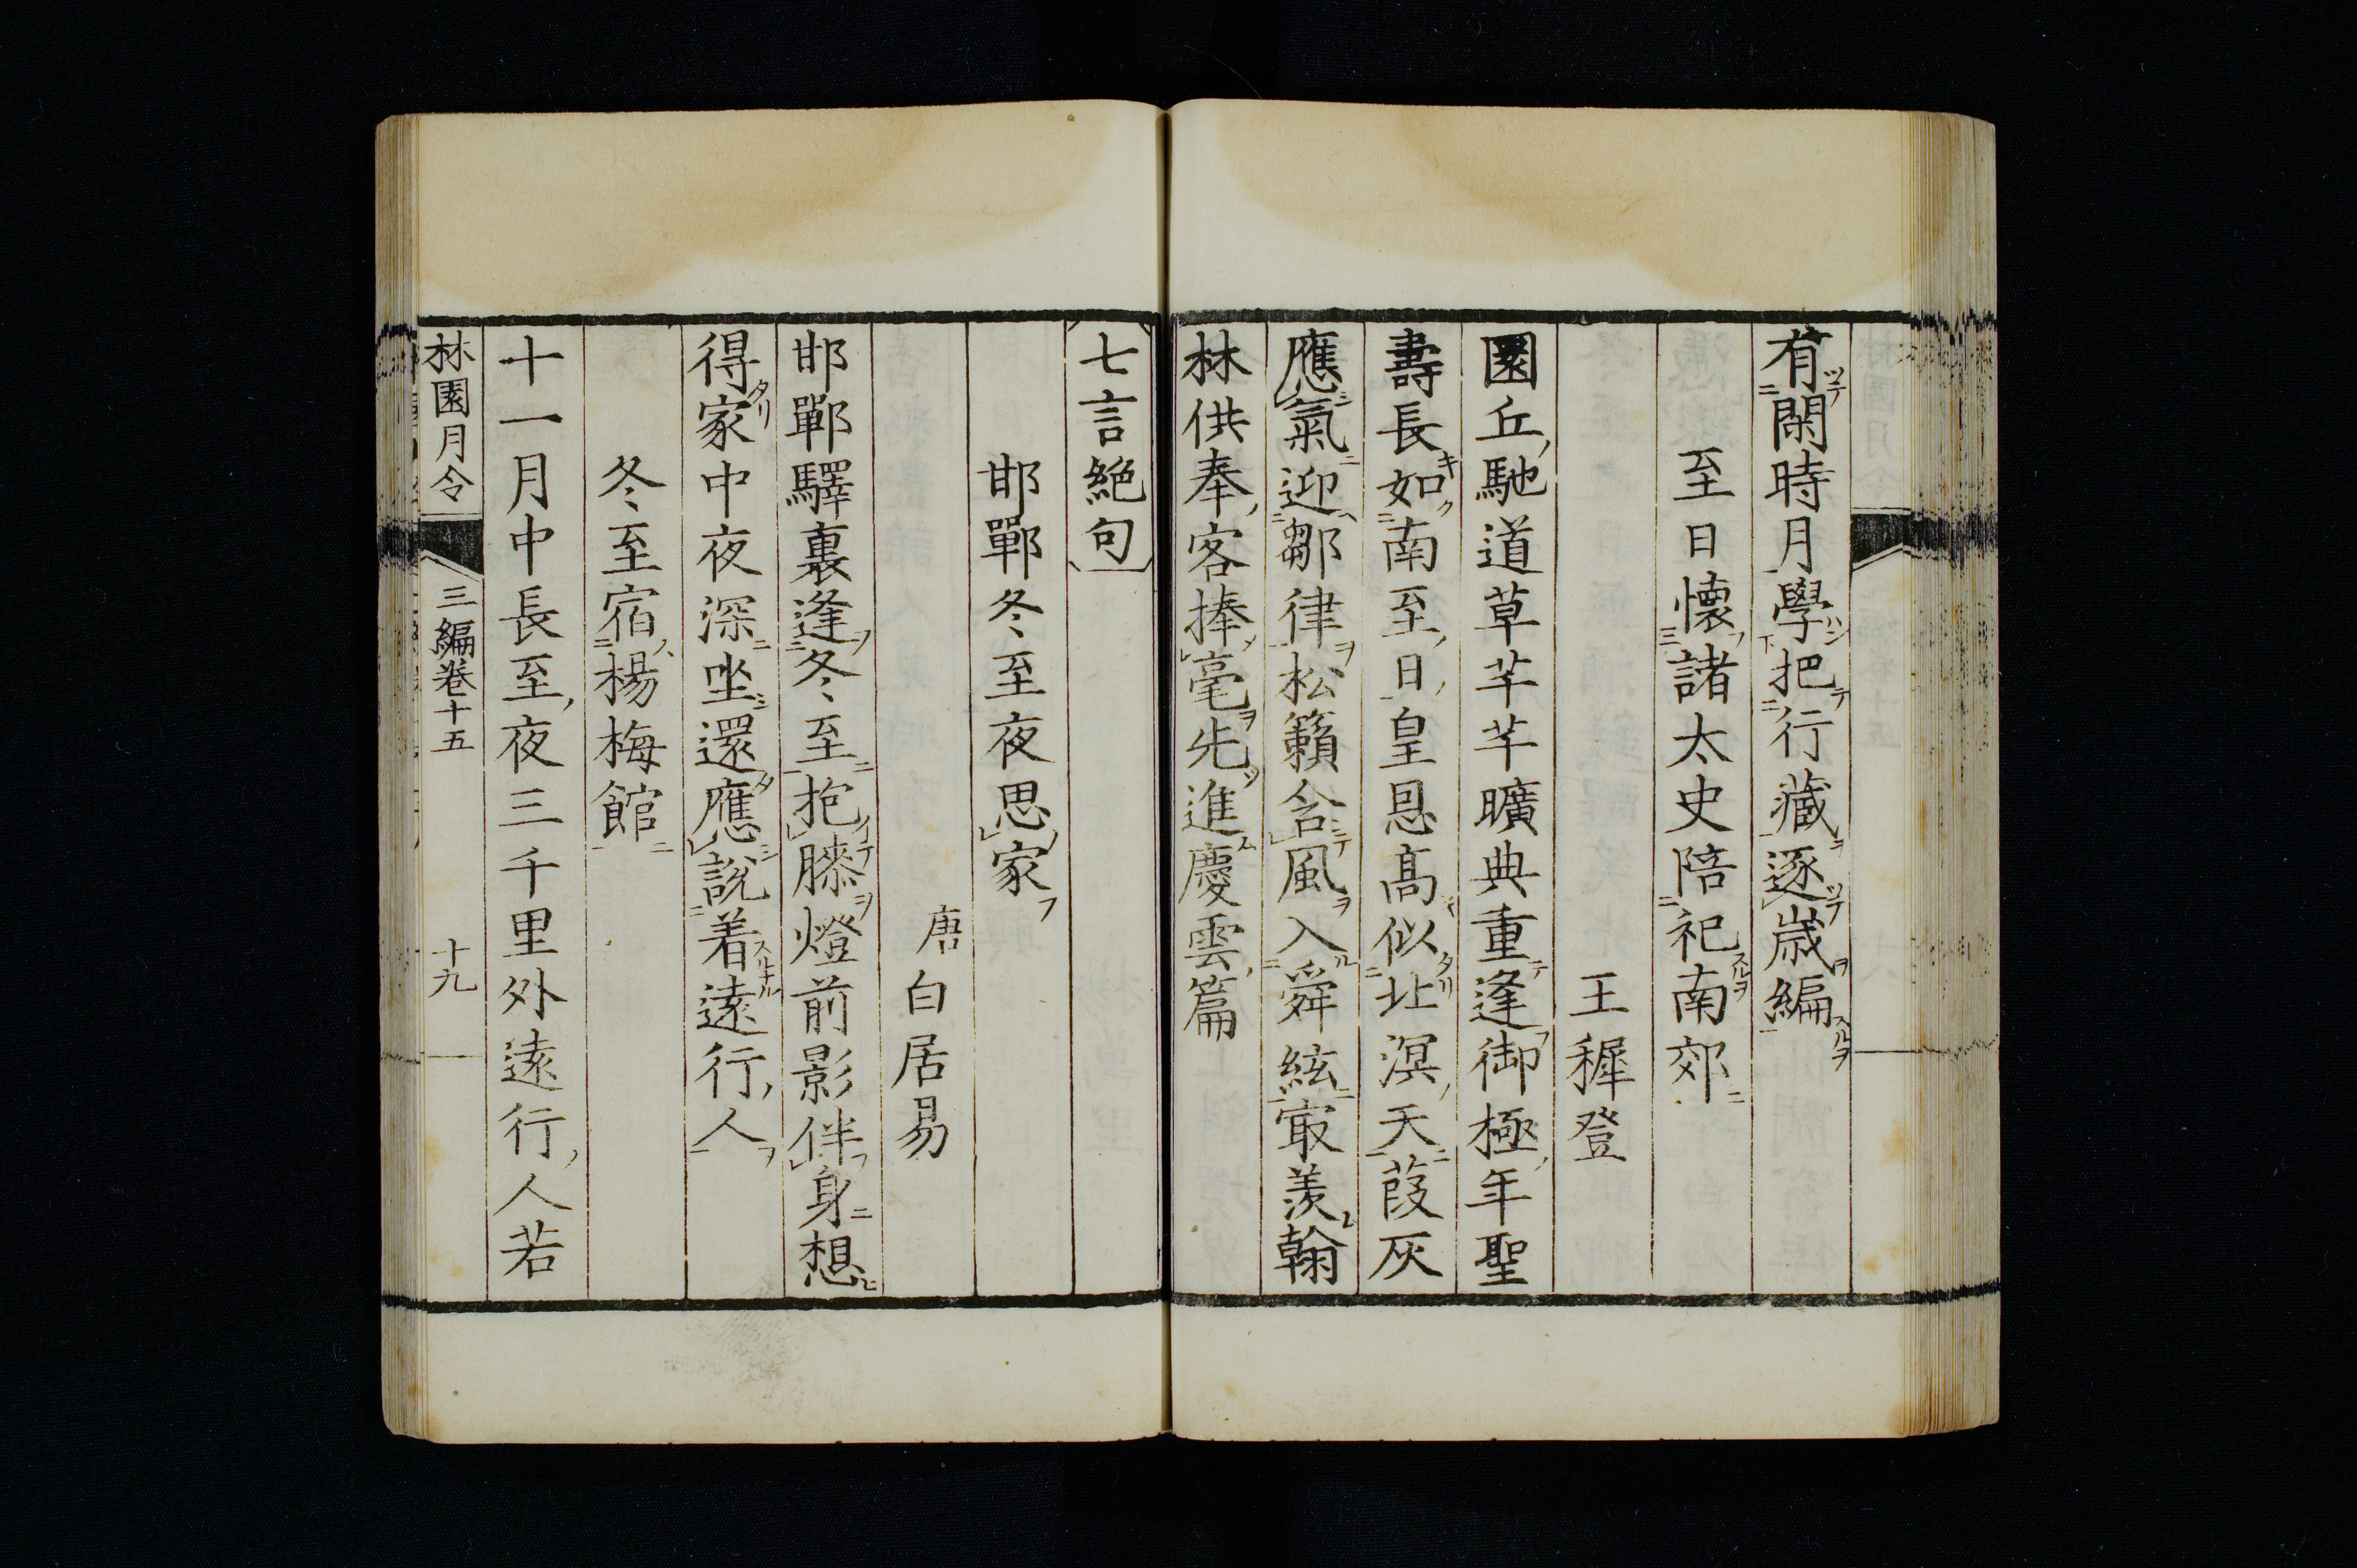 有閑時月學把行藏逐歳編
至日懐諸太史陪祀南郊
王穉登
圜丘馳道草芊芊曠典重逢御極年聖
壽長如南至日皇恩髙似北溟天葭灰
應氣迎鄒律松籟含風入舜絃㝡羡翰
林供奉客捧毫先進慶雲篇
七言絶句
邯鄲冬至夜思家
唐白居易
邯鄲驛裏逢冬至抱膝燈前影伴身想
得家中夜深坐還應説着遠行人
冬至宿楊梅館
十一月中長至夜三千里外遠行人若
林園月令 三編卷十五 十九